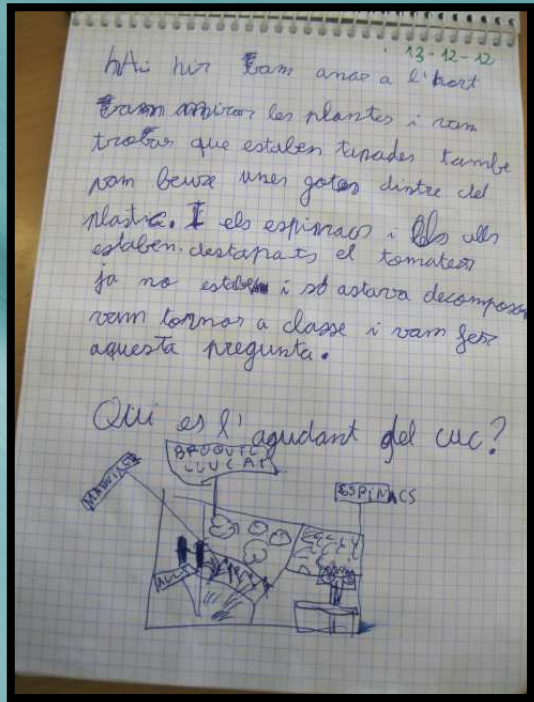 13-12-12
hAi hir vam anar a l'hort
vam mirar les plantes i vam
trobar que estaben tapades tambe
vam beure unes gotes dintre del
plastic. I els espinacs i els alls
estaben destapats el tomates
ja no estaben i sò astava decomposa
vam tornar a classe i vam fer
aquesta pregunta.
Qui es l'agudant del cuc?
BROQUIL
ESPINACS
ALLS